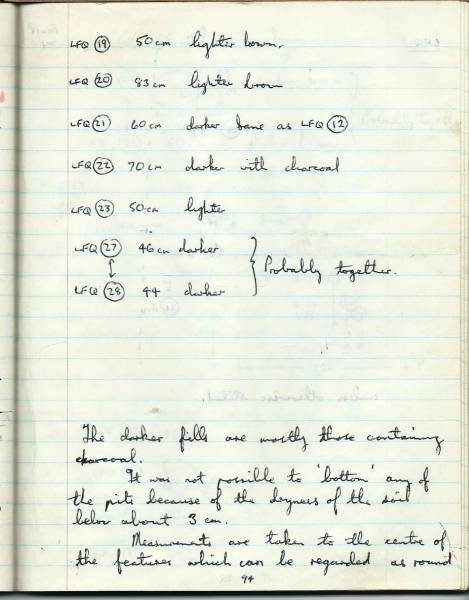 LFQ (19) 50cm lighter bown.
LFQ (20) 83cm lighter brown
LFQ (21) 60cm darker same as LFQ (12)
LFQ (22) 70cm darker with charcoal
LFQ (23) 50cm lighter
LFQ (27) 46cm darker
Probably together.
LFQ (28) 44 darker
The darker fills are mostly those containing
charcoal.
It was not possible to 'bottom' any of
the pits because of the dryness of the soil
below about 3 cm.
Measurements are taken to the centre of
the features which can be regarded as round
94